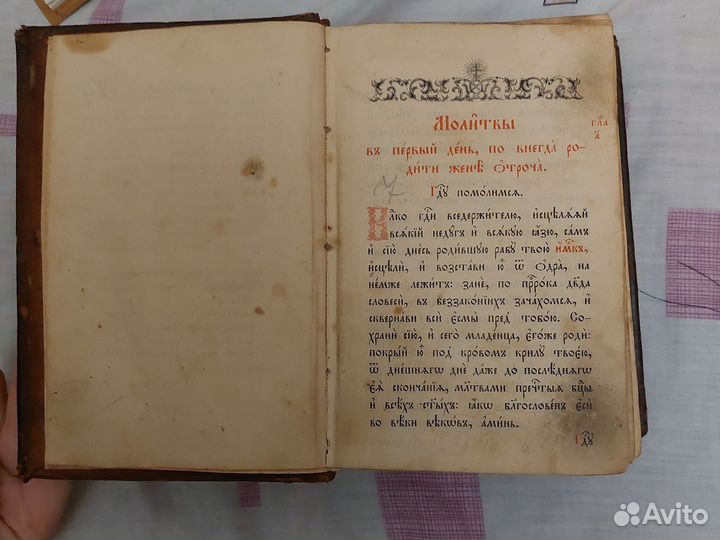 Моли҃твы
гла̀ а҃
въ пе́рвый де́нь, по внегда̀ ро-
ди́ти женѣ̀ ѻ҆троча̀.
7
Гдⷭ҇ꙋ помо́лимсѧ.
Влⷣко гдⷭ҇и вседержи́телю, и҆сцѣлѧ́ѧй
всѧ́кїй недꙋ́гъ и҆ всѧ́кꙋю ꙗ҆́зю, са́мъ
и҆ сїю̀ дне́сь роди́вшꙋю рабꙋ̀ твою̀ и҆́м҃къ,
и҆сцѣлѝ, и҆ возста́ви ю҆̀ ѿ ѻ҆дра̀, на
не́мже лежи́тъ: занѐ, по прⷪ҇ро́ка дв҃да
словесѝ, въ беззако́нїихъ зача́хомсѧ, и҆
скве́рнави всѝ є҆смы̀ пред̾ тобо́ю. Со-
хранѝ сїю̀, и҆ сего̀ младе́нца, є҆го́же родѝ:
покры́й ю҆̀ под̾ кро́вомъ крилꙋ̀ твоє́ю,
ѿ дне́шнѧгѡ днѐ да́же до послѣ́днѧгѡ
є҆ѧ̀ сконча́нїѧ, мл҃твами пречⷭ҇тыѧ бцⷣы
и҆ всѣ́хъ ст҃ы́хъ: ꙗ҆́кѡ бл҃гослове́нъ є҆сѝ
во вѣ́ки вѣкѡ́въ, а҆ми́нь.
Гдⷭ҇ꙋ
Avito